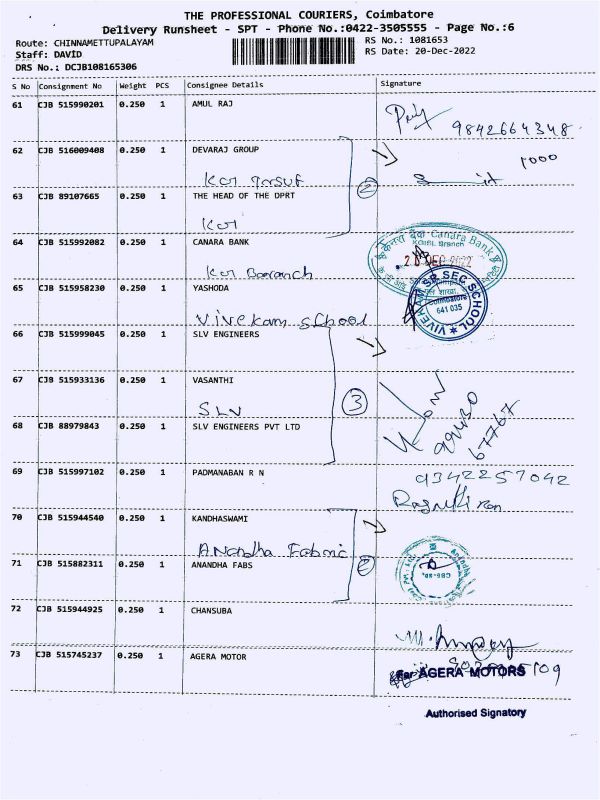 THE PROFESSIONAL COURIERS, Coimbatore
Delivery Runsheet - SPT - Phone No.:0422-3505555 - Page No.:6
Route: CHINNAMETTUPALAYAM
RS No.: 1081653
Staff: DAVID
RS Date: 20-Dec-2022
DRS No.: DCJB108165306
S No Consignment No Weight PCS Consignee Details Signature
61 CJB 515990201 0.250 1 AMUL RAJ
9842664348
62 CJB 516009408 0.250 1 DEVARAJ GROUP
1000
2
63 CJB 89107665 0.250 1 THE HEAD OF THE DPRT
KCT
64 CJB 515992082 0.250 1 CANARA BANK
Canara Bank
Branch
20 DEC 2022
65 CJB 515958230 0.250 1 YASHODA
Vivekam School
VIVEKAM SR SEC SCHOOL
Coimbatore
641 035
66 CJB 515999045 0.250 1 SLV ENGINEERS
67 CJB 515933136 0.250 1 VASANTHI
SLV
3
68 CJB 88979843 0.250 1 SLV ENGINEERS PVT LTD
99430
67767
69 CJB 515997102 0.250 1 PADMANABAN R N
9342257042
70 CJB 515944540 0.250 1 KANDHASWAMI
Anandha Fabric
2
71 CJB 515882311 0.250 1 ANANDHA FABS
72 CJB 515944925 0.250 1 CHANSUBA
73 CJB 515745237 0.250 1 AGERA MOTOR
For AGERA MOTORS
Authorised Signatory